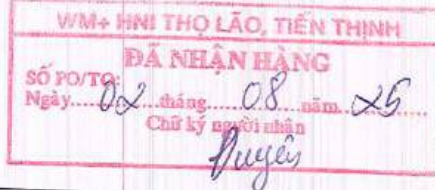 WM+ HNI THỌ LÃO, TIẾN THỊNH
ĐÃ NHẬN HÀNG
SỐ PO/TO:
Ngày.....02.....tháng.....08.....năm.....25.....
Chữ ký người nhận
Duyên